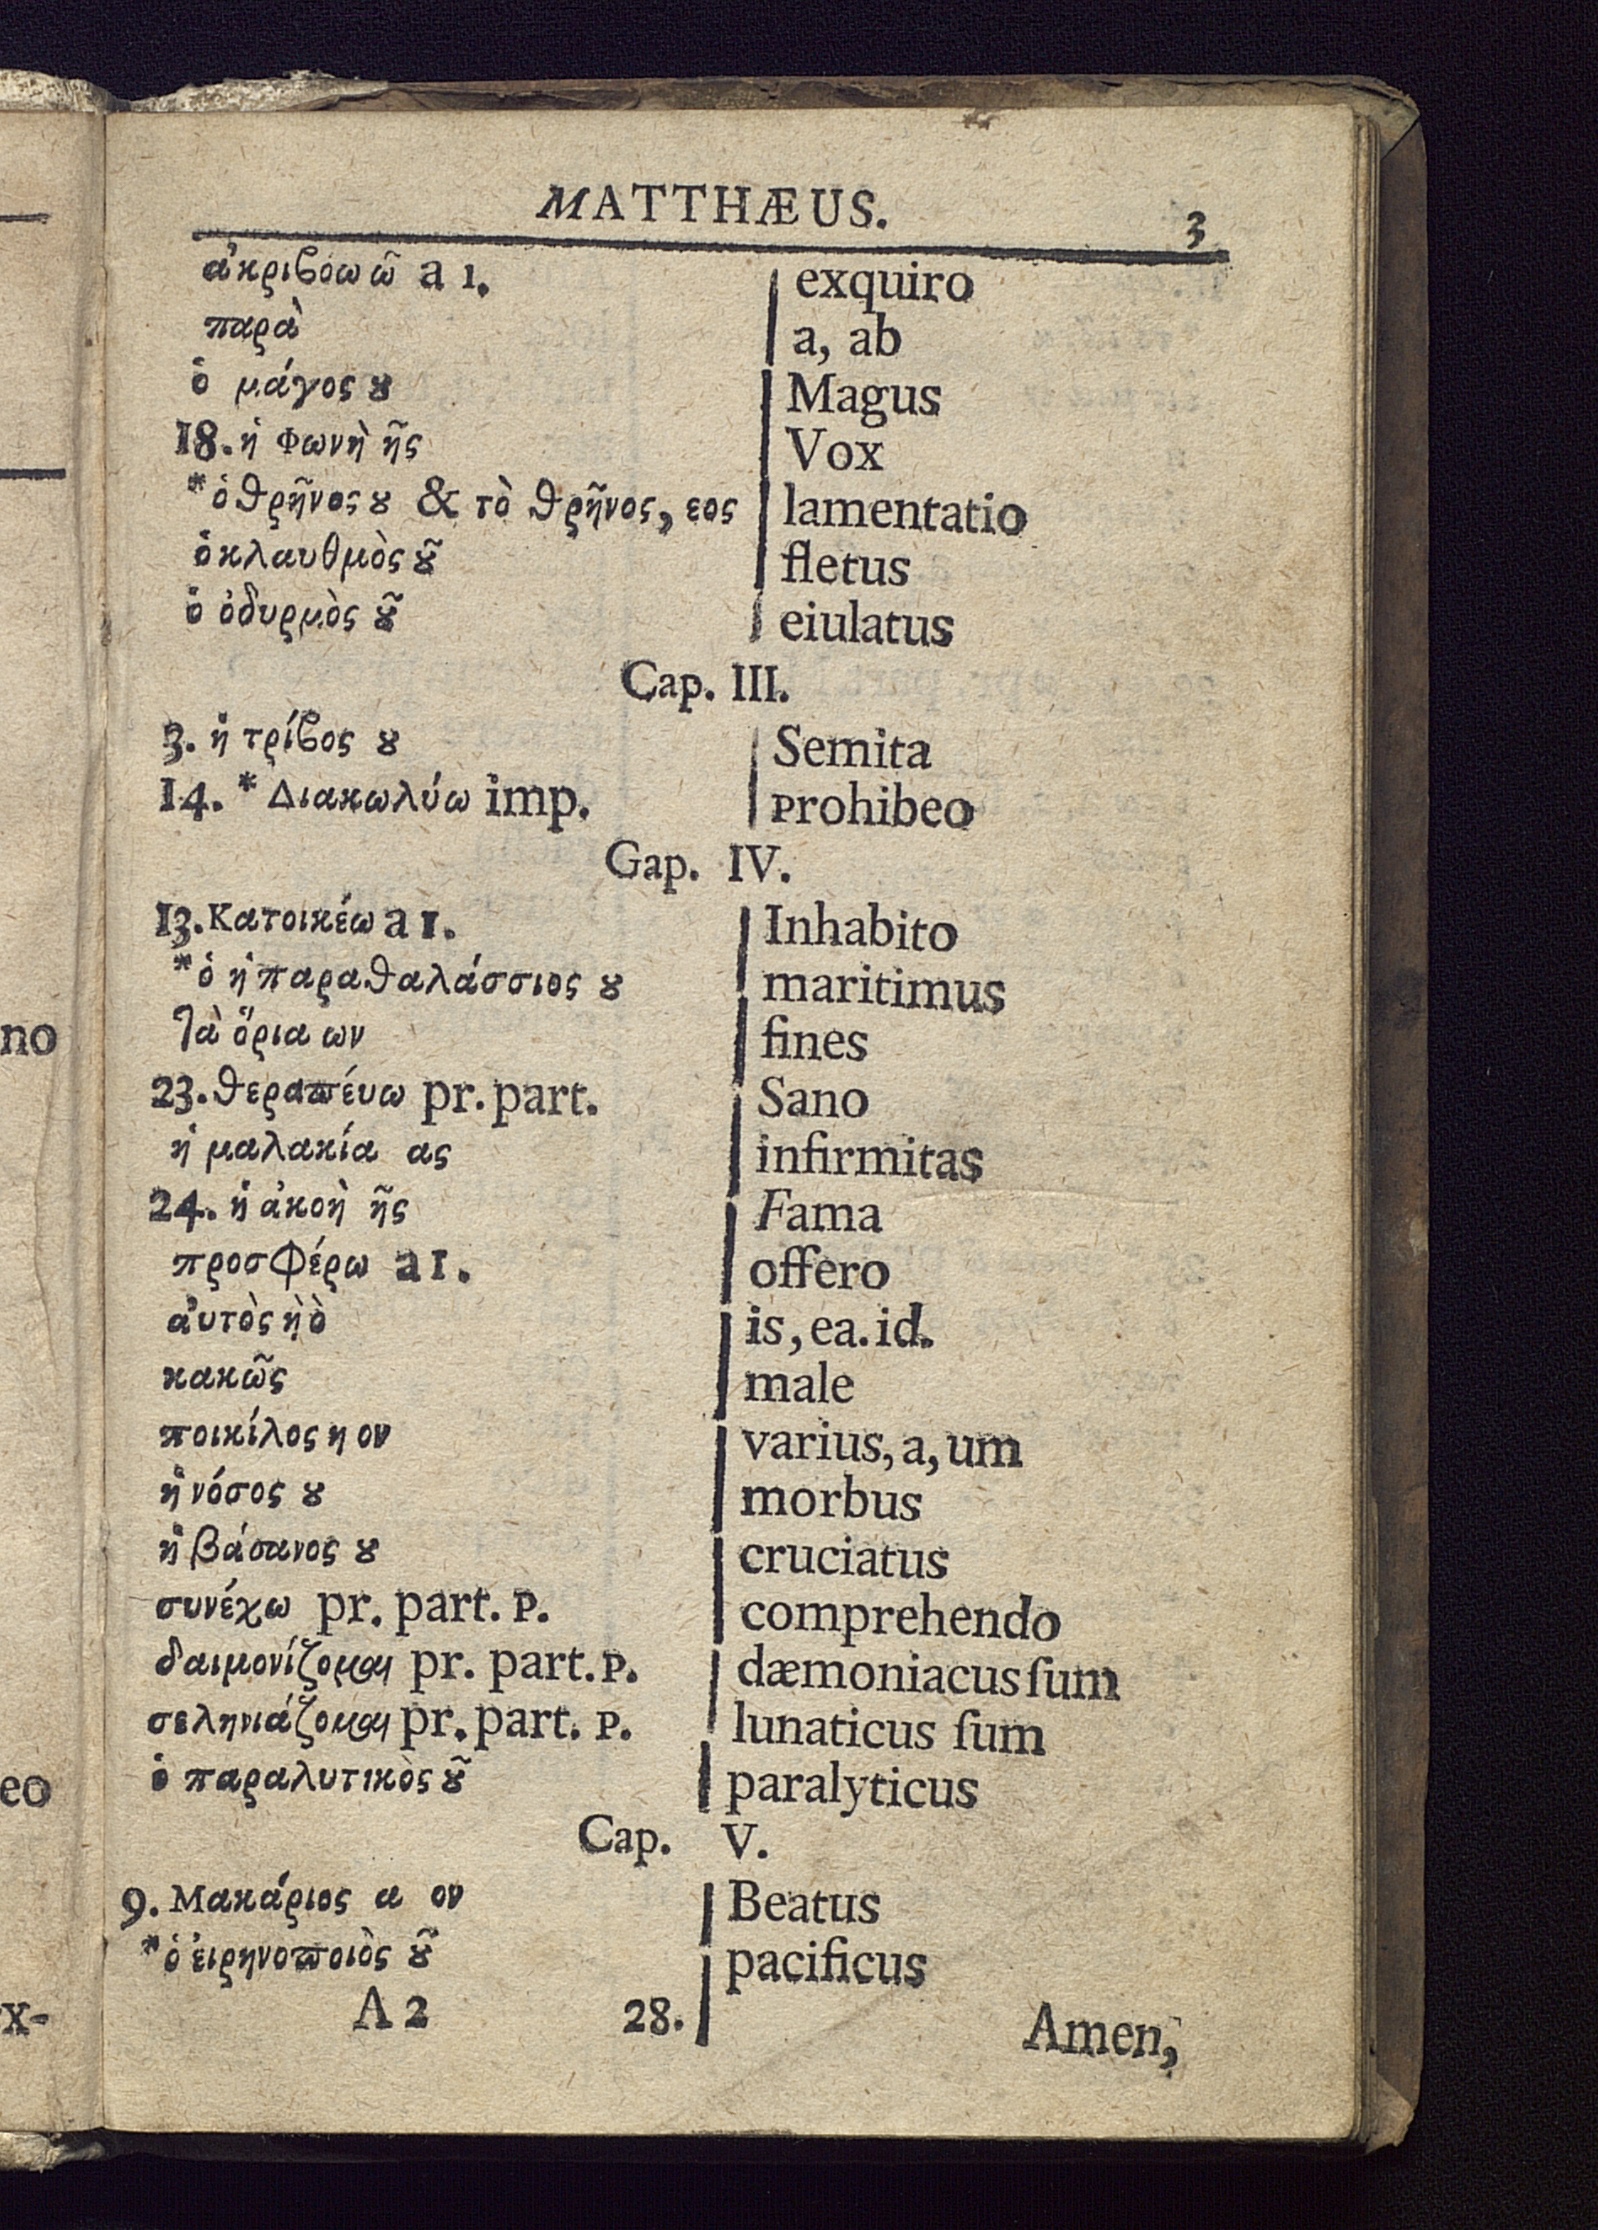 MATTHÆUS. 3
ἀκριϐοω ῶ a 1. exquiro
παρὰ a, ab
ὁ μάγος ȣ Magus
18. ἡ φωνὴ ῆς Vox
* ὁ θρῆνος ȣ & τὸ θρῆνος, εος lamentatio
ὁ κλαυθμὸς ȣ͂ fletus
ὁ ὀδυρμὸς ȣ͂ eiulatus
Cap. III.
3. ἡ τρίϐος ȣ Semita
14. * Διακωλύω imp. prohibeo
Gap. IV.
13. Κατοικέω a 1. Inhabito
* ὁ ἡ παραθαλάσσιος ȣ maritimus
Τὰ ὅρια ων fines
23. θεραπέυω pr. part. Sano
ἡ μαλακία ας infirmitas
24. ἡ ἀκοὴ ῆς Fama
προσφέρω a 1. offero
ἀυτὸς ὴ ὸ is, ea. id.
κακῶς male
ποικίλος η ον varius, a, um
ἡ νόσος ȣ morbus
ἡ βάσανος ȣ cruciatus
συνέχω pr. part. P. comprehendo
δαιμονίζομαι pr. part. P. dæmoniacus ſum
σεληνιάζομαι pr. part. P. lunaticus ſum
ὁ παραλυτικὸς ȣ͂ paralyticus
Cap. V.
9. Μακάριος α ον Beatus
* ὁ ἐιρηνοποιὸς ȣ͂ pacificus
A 2 28. Amen,
no
eo
x-